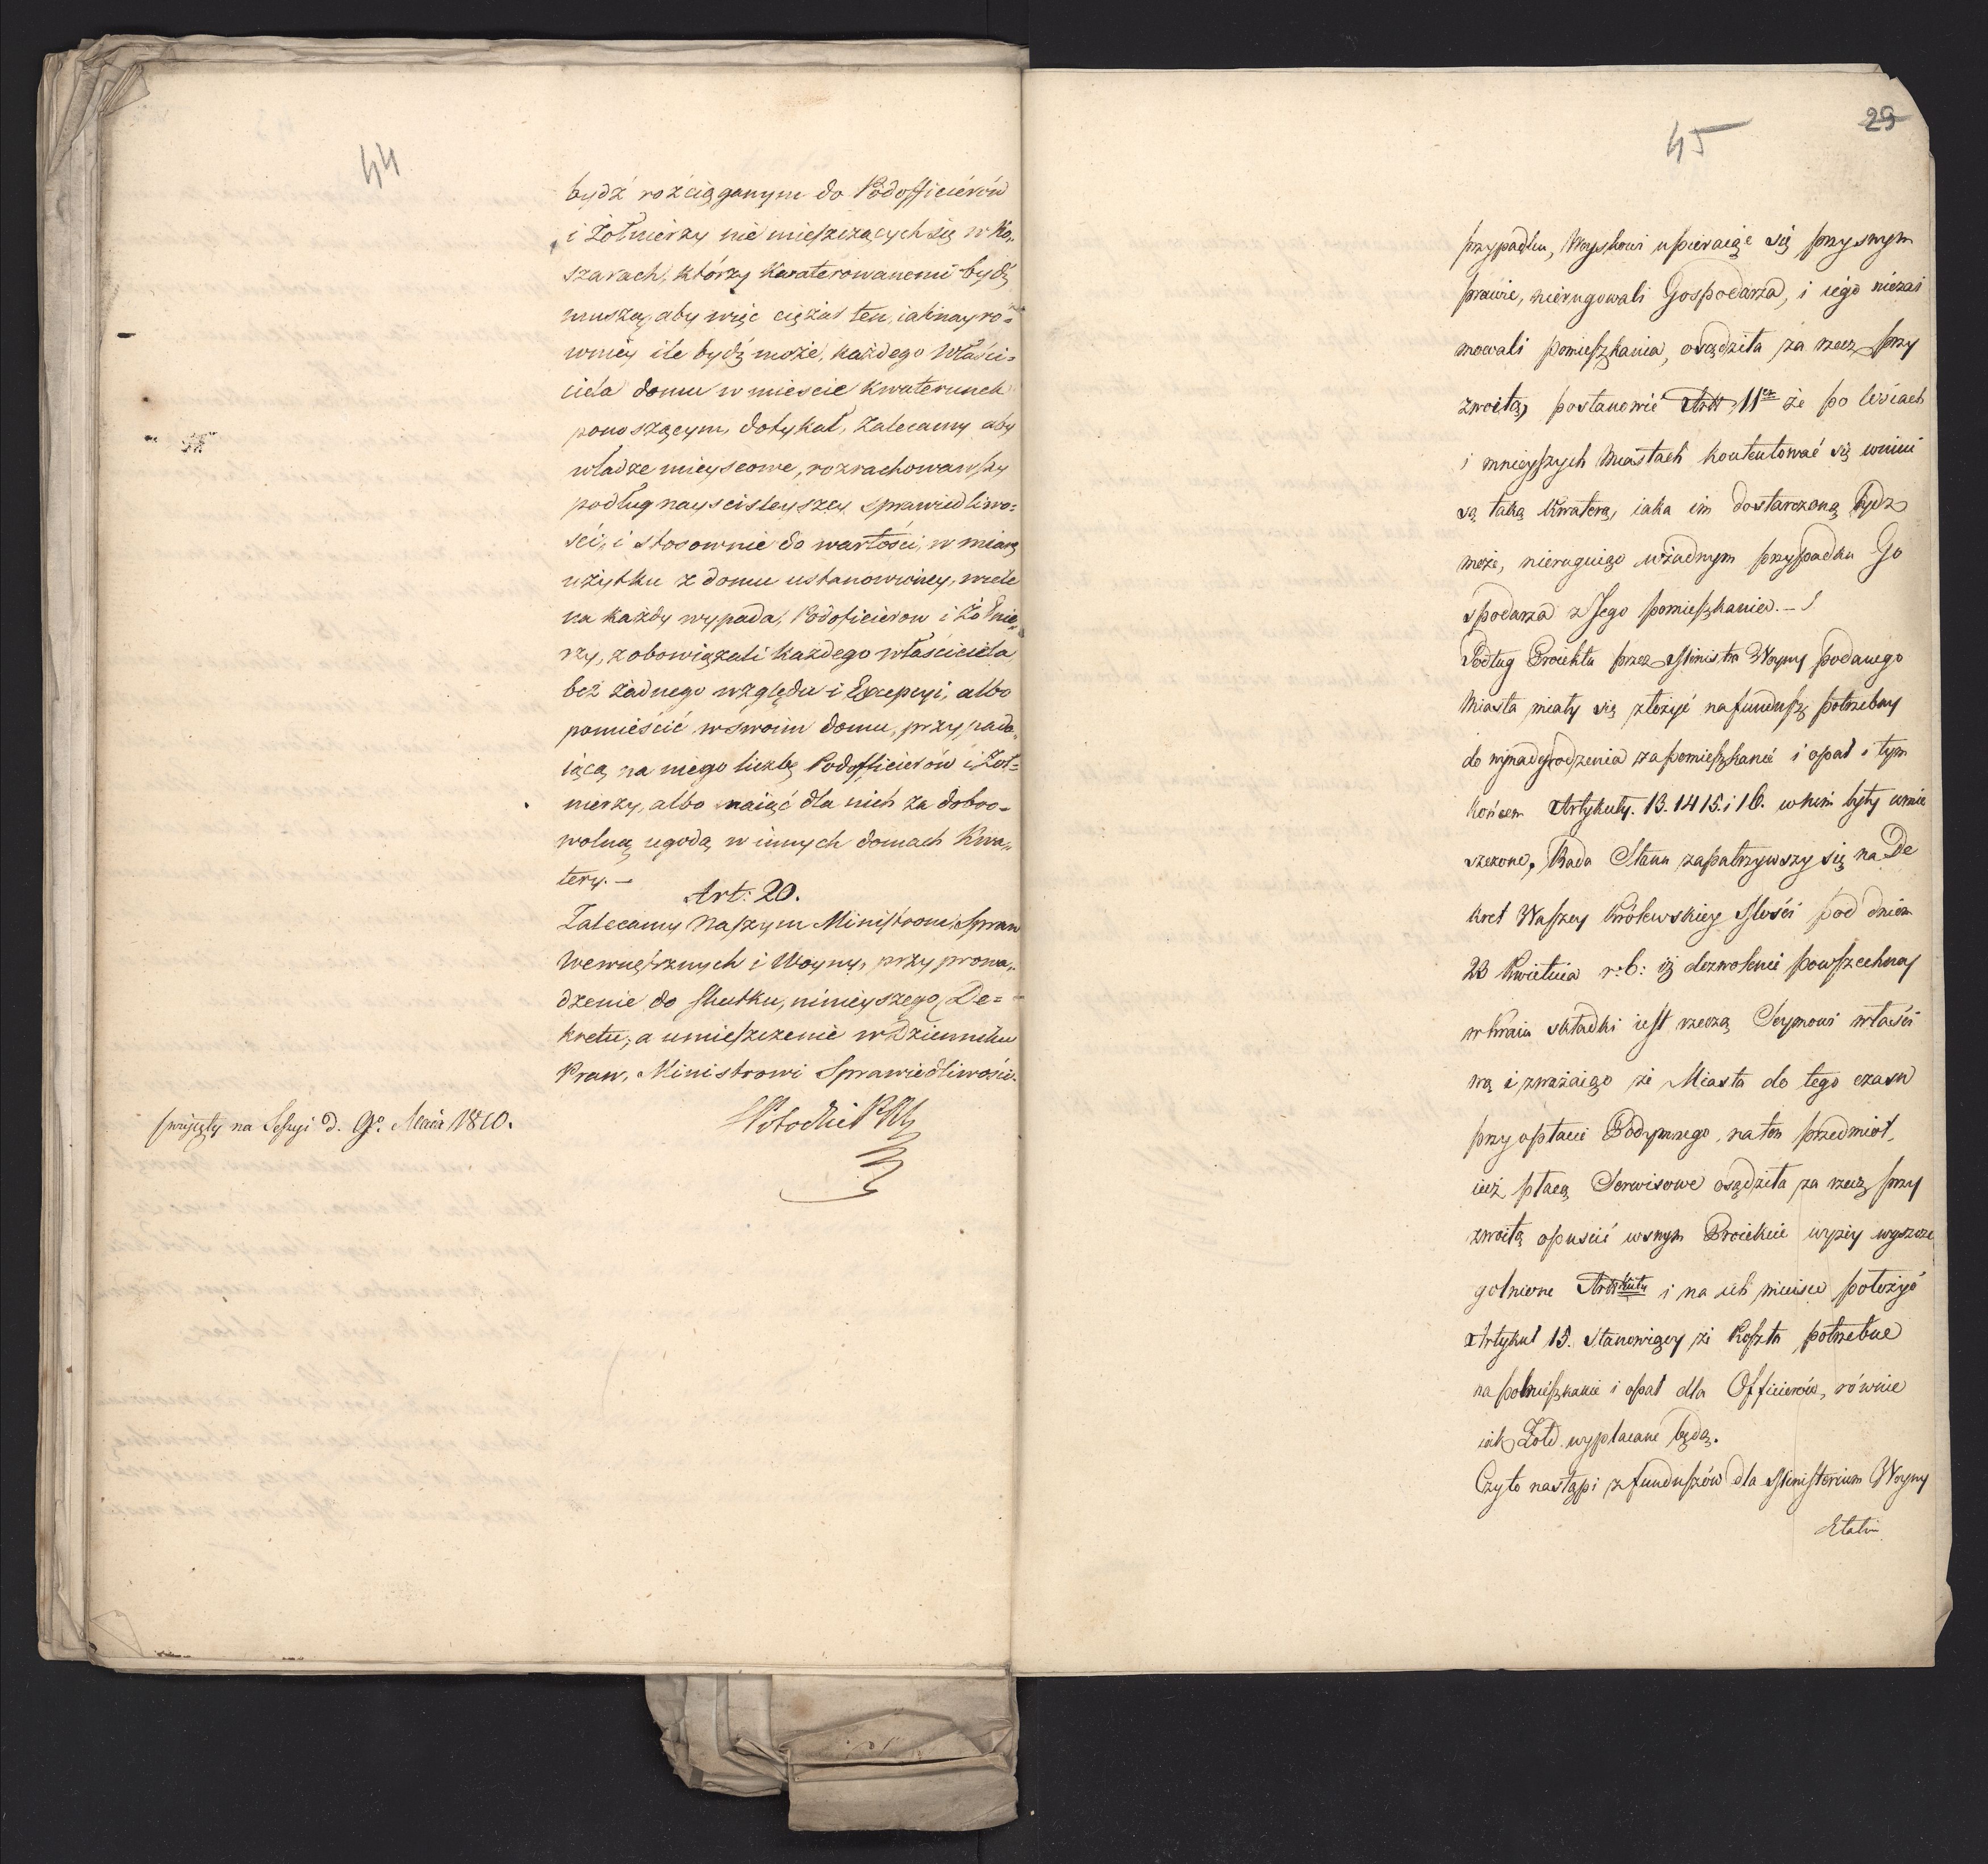 44
bydź rozciąganym do Podofficierów
i Żołnierzy nie mieszczących się w Ko„
szarach, którzy Kwaterowanemi bydź
muszą, aby więc ciężar ten, iak nayró=
wniey ile bydź może, każdego Właści=
ciela domu w mieście Kwaterunek
ponoszącym, dotykał, Zalecamy aby
władze mieyscowe, rozrachowawszy
podług nayściśleyszey sprawiedliwo=
ści, i stosownie do wartości, w miarę
użytku z domu ustanowioney, wiele
na każdy wypada, Podoficierow i Żołnie„
rzy, zobowiązali każdego właściciela
bez żadnego względu i Excepcyi, albo
pomieścić w swoim domu, przypada„
iącą na niego liczbę Podofficierów i Żoł=
nierzy, albo naiąć dla nich za dobro=
wolną ugodą w innych domach Kwa„
tery. —
Art: 20.
Zalecamy Naszym Ministrom, Spraw
Wewnętrznych i Woyny, przyprowa„
dzenie do skutku, ninieyszego De=
kretu, a umieszczenie w Dzienniku
Praw, Ministrowi Sprawiedliwości.
przyjęty na Sessyi d. 9º Maia 1810.
29
45
przypadku, Woyskowi upieraiąc się przy swym
prawie, nierugowali Gospodarza, i iego niezai
mowali pomieszkania, osądziła za rzecz przy
zwoitą, postanowić Artt 11 że po wsiach
i mnieyszych Miastach kontentować się winni
są taką Kwaterą, iaka im dostarczoną bydz
może, nieruguiąc wżadnym przypadku Go
spodarza z Jego pomieszkania. —
Podług Proiektu przez Ministra Woyny podanego
Miasta miały się złożyć na fundusz potrzebny
do wynadgrodzenia za pomieszkanie i opał i tym
końcem Artykuły. 13. 14 15. i 16. w nim były umie
szczone, Rada Stanu zapatrzywszy się na De
kret Waszey Królewskiey Mości pod dniem
23 Kwietnia r: b: iż dozwolenie powszechney
w kraiu składki iest rzeczą Seymowi właści
wą i zważaiąc że Miasta do tego czasu
przy opłacie Podymnego, na ten przedmiot,
iuż płacą Serwisowe osądziła za rzecz przy
zwoitą opuścić w swym Proiekcie wyżey wyszcze
golnione Artkuły i na ich mieisce położyć
Artykuł 13. Stanowiący że Koszta potrzebne
na pomieszkanie i opał dla Officierów, równie
iak Żołd wypłacane będą.
Czyto nastąpi z funduszów dla Ministerium Woyny
Etatim